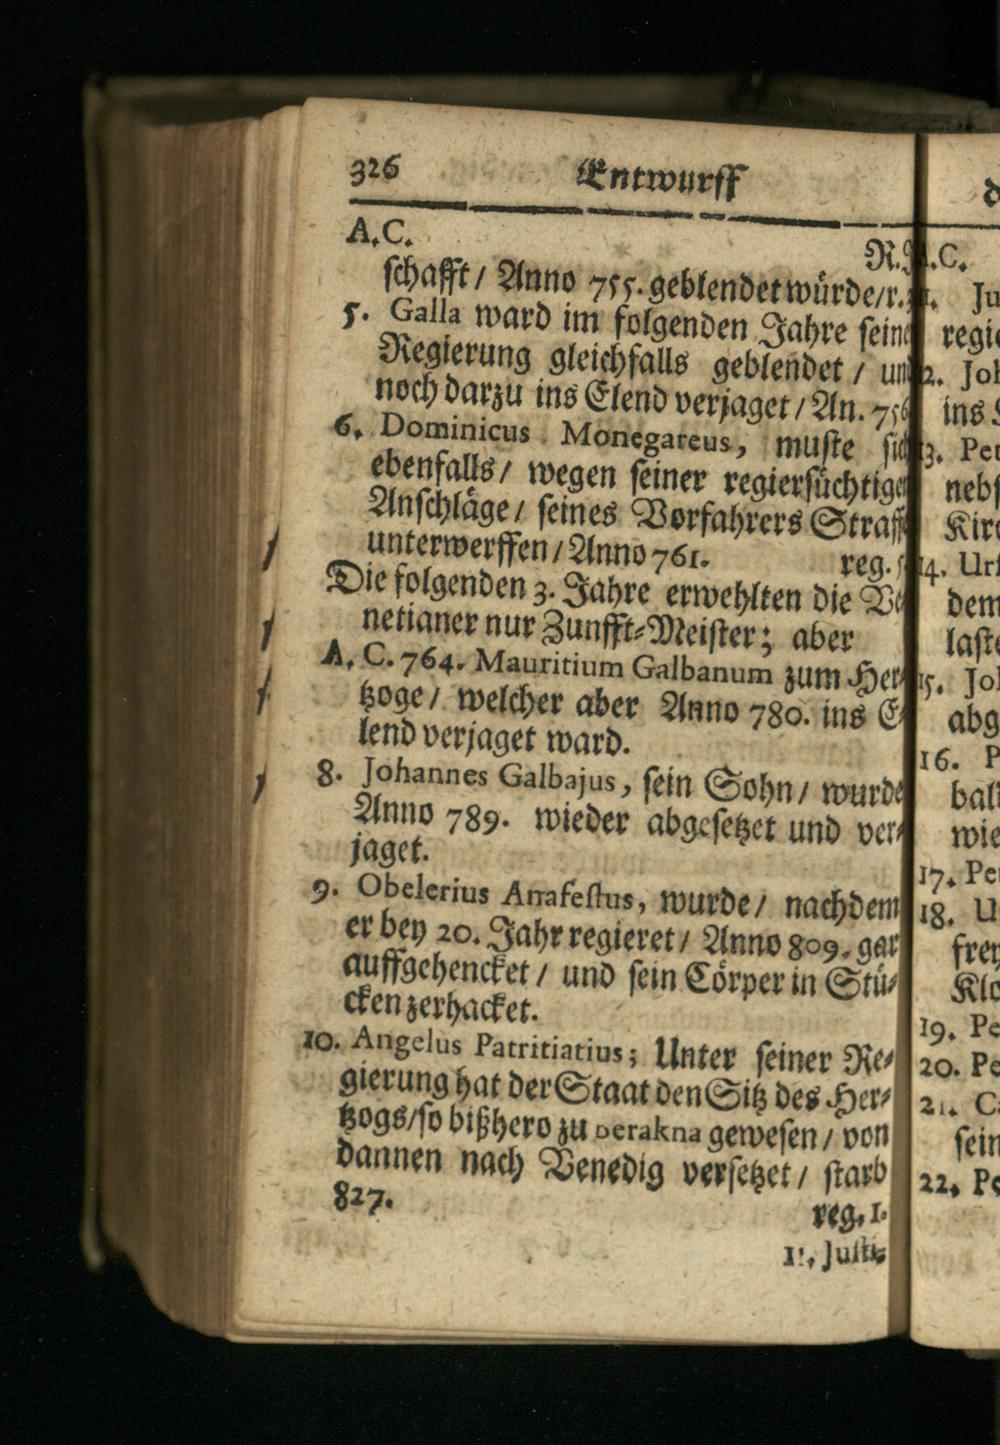 326 Entwurff
A.C.
schafft / Anno 755. geblendet würde/r.
5. Galla ward im folgenden Jahre seine
Regierung gleichfalls geblendet / und
noch darzu ins Elend verjaget / An. 756
6. Dominicus Monegareus, muste sich
ebenfalls / wegen seiner regiersüchtigen
Anschläge / seines Vorfahrers Straff
unterwerffen / Anno 761. reg.
Die folgenden 3. Jahre erwehlten die Ve
netianer nur Zunfft-Meister; aber
A. C. 764. Mauritium Galbanum zum Her-
tzoge / welcher aber Anno 780. ins E-
lend verjaget ward.
8. Johannes Galbajus, sein Sohn / wurde
Anno 789. wieder abgesetzet und ver-
jaget.
9. Obelerius Anafestus, wurde / nachdem
er bey 20. Jahr regieret / Anno 809. gar
auffgehencket / und sein Cörper in Stü-
cken zerhacket.
10. Angelus Patritiatius; Unter seiner Re-
gierung hat der Staat den Sitz des Her-
tzogs/so bißhero zu gewesen / von
dannen nach Venedig versetzet / starb
827. reg. 1.
11. Justi-
A.C.
Ju
regie
12. Joh
ins
13. Pet
neb
Kirc
14. Urs
dem
last
15. Joh
abg
16. P
bal
wie
17. Pe
18. U
frey
Klo
19. Pe
20. Pe
21. Ca
sein
22. Pe